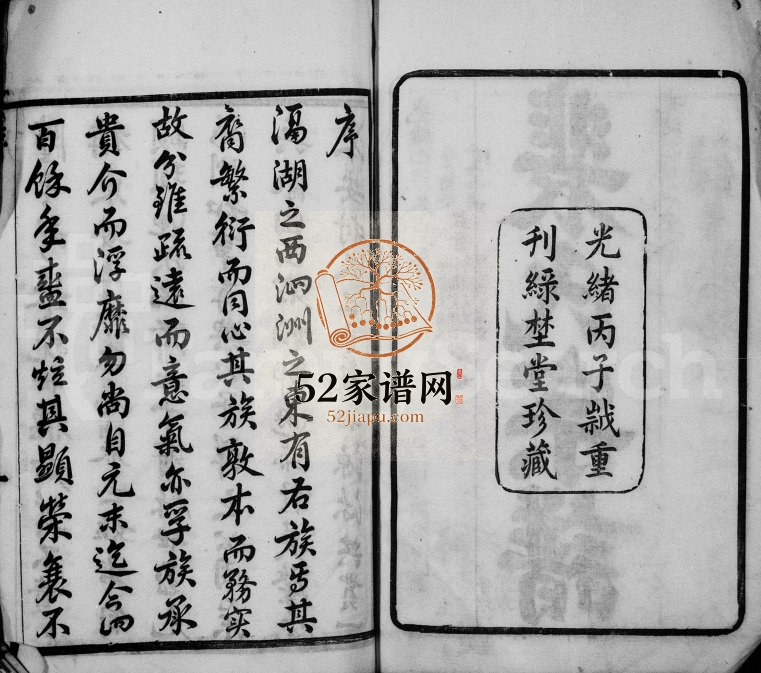 光緒丙子歲重
刊綠埜堂珍藏
序
滆湖之西泗洲之東有右族焉其
裔繁衍而同心其族敦本而務实
故分雖疏遠而意氣亦孚族承
貴介而浮靡勿尚自元末迄今四
百餘年盛不炫其顯榮衰不
52家谱网
52jiapu.com